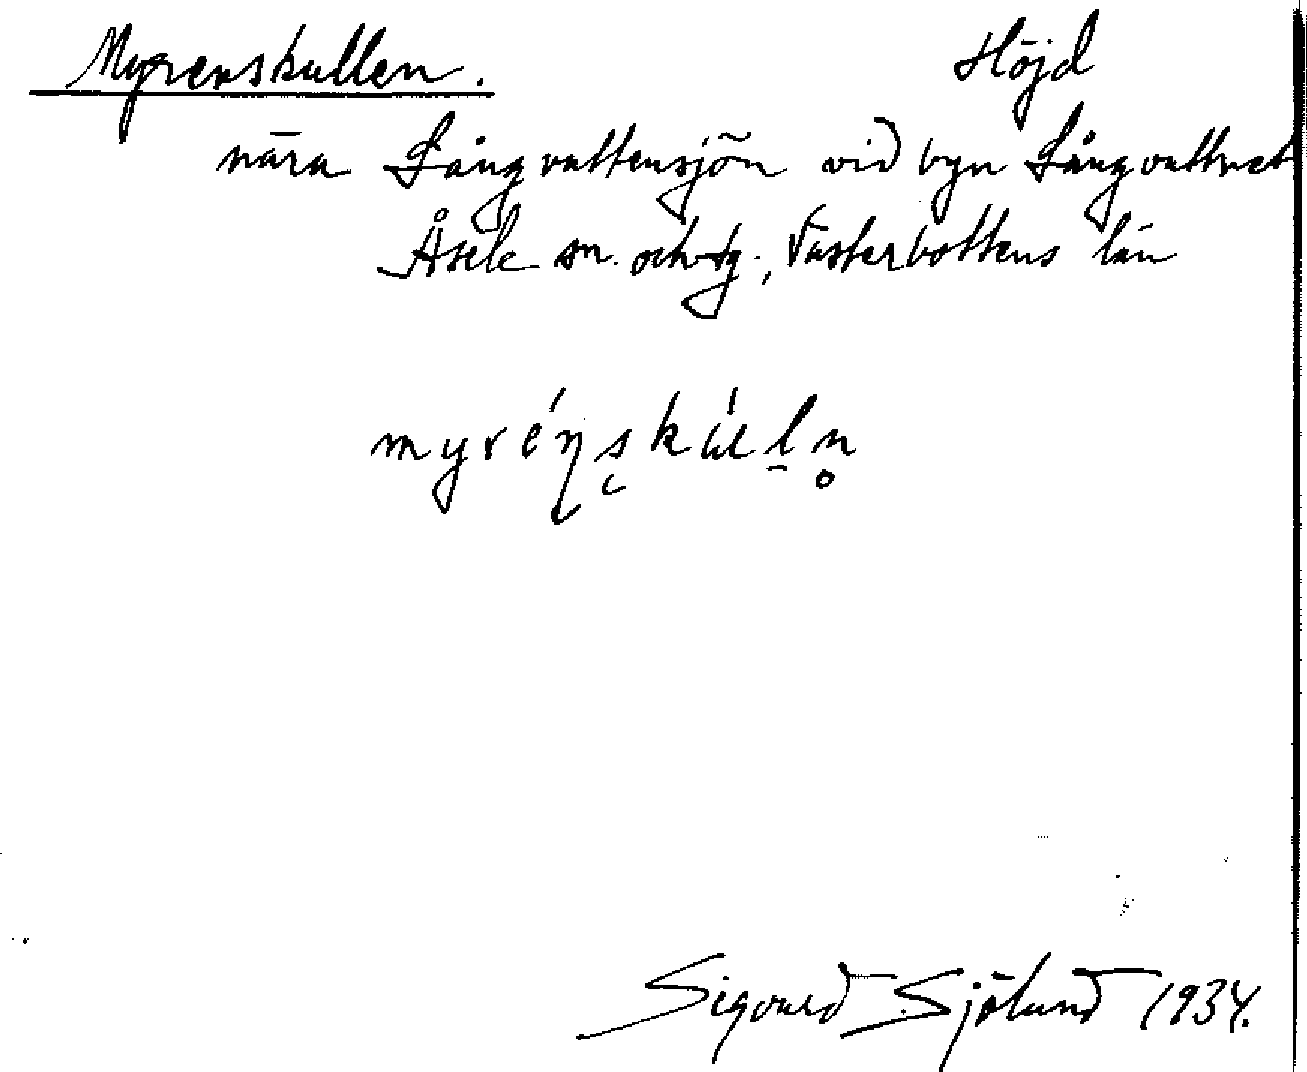 Myrenskullen. Höjd
nära Långvattensjön vid byn Långvattnet
Åsele sn. och tg., Västerbottens län
myréŋskúLn̥
Sigvard Sjölund 1934.